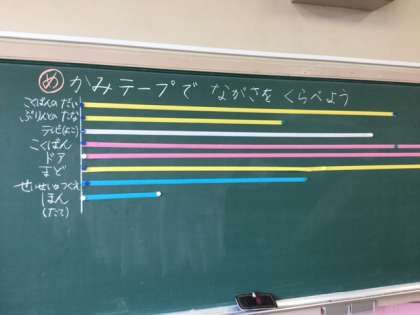 め かみテープで ながさを くらべよう
こくばんのだい
ぷりんとのたな
テレビ(よこ)
こくばん
ドア
まど
せんせいのつくえ
ほん
(たて)